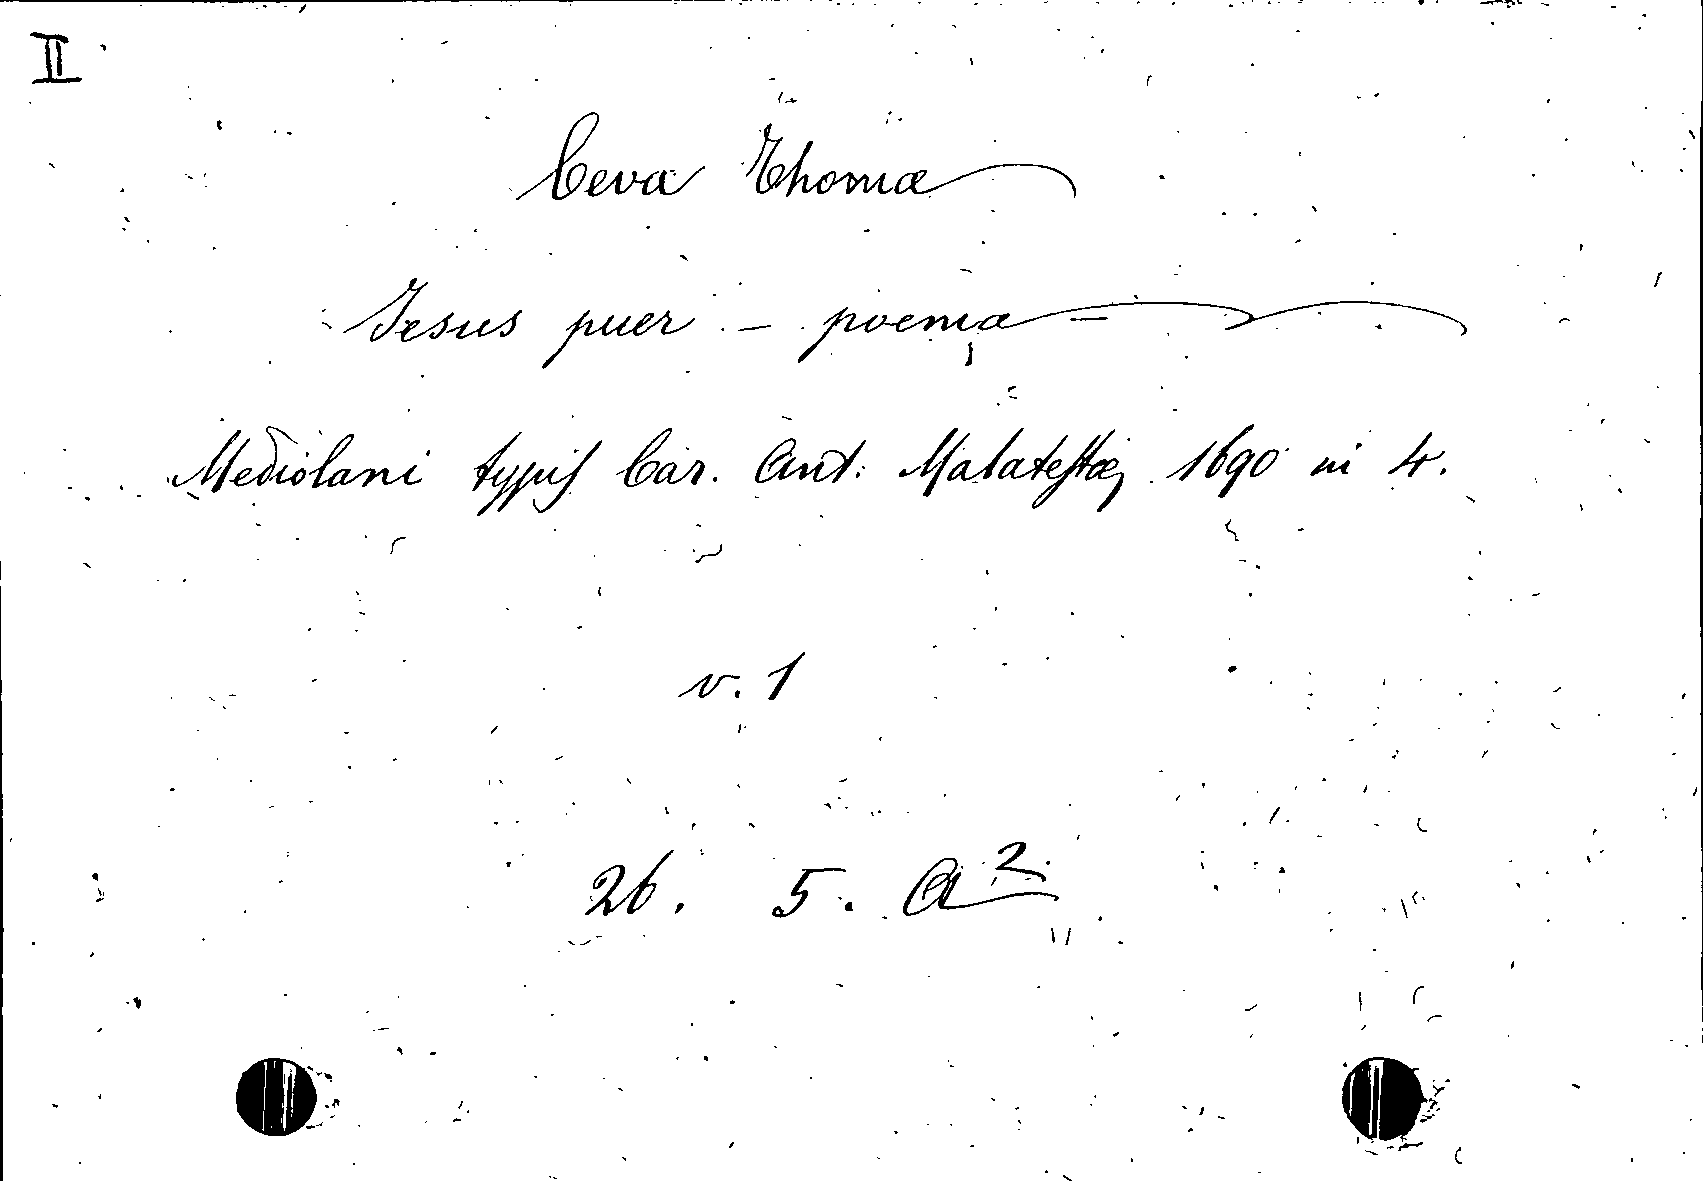 II
Ceva Thoma
Jesus puer - poema -
Mediolani typis Car. Ant. Malatestæ, 1690 in 4.
v. 1
26. 5. A 2.